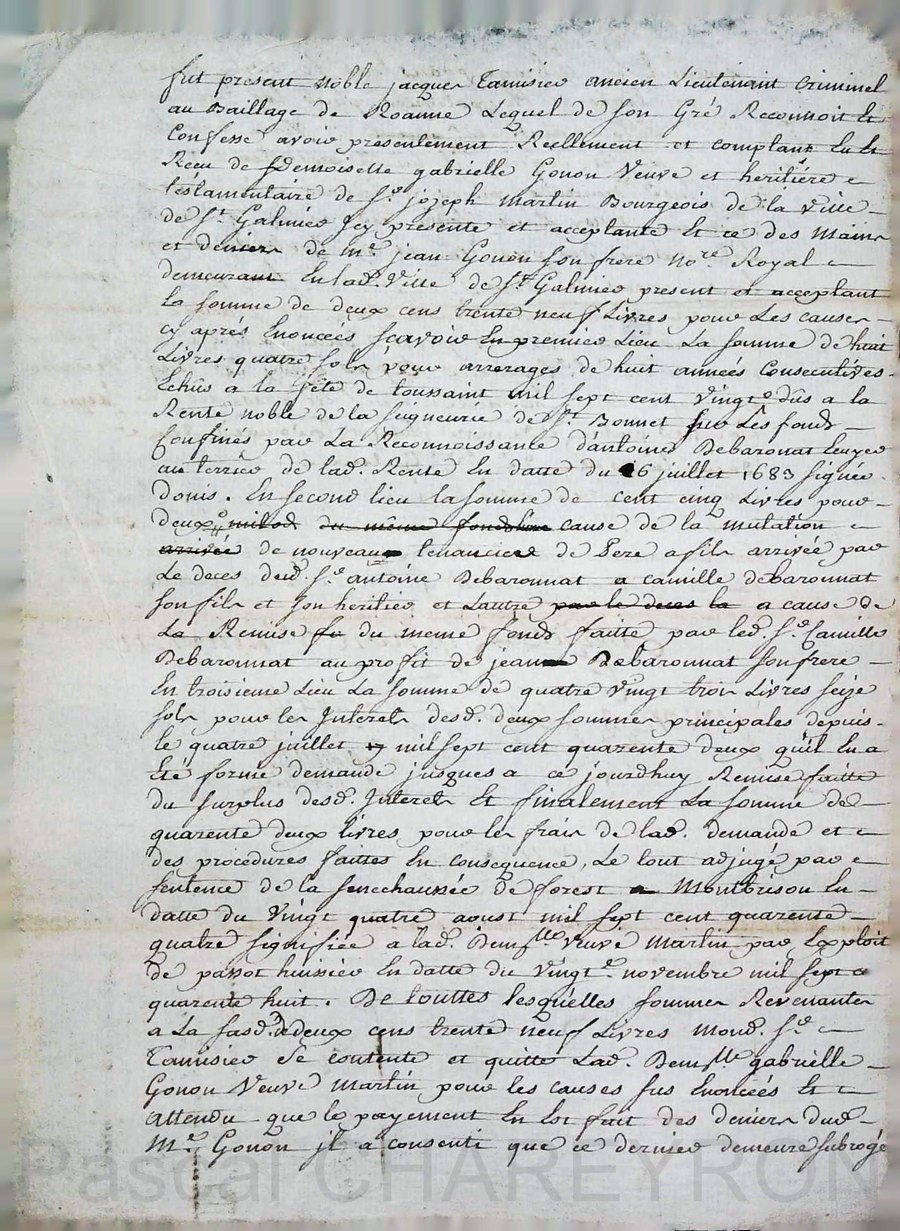 fut present noble jacques Tamisier ancien Lieutenant Criminel
au Baillage de Roanne Lequel de son Gré Reconnoit Et
Confesse avoir presentement Reellement et comptant Eu Et
Receu de Demoiselle gabrielle Gonon Veuve et heritiére
testamentaire de Sr. jozeph Martin Bourgeois de la Ville
de St. Galmier Icy presente et acceptante Et ce des Mains
et deniers de me. jean Gonon son frere Nore. Royal
demeurant En lad. Ville de St Galmier present et acceptant
La somme de deux cens trente neuf Livres pour Les causes
cy apres Enoncées sçavoir En premier Lieu La somme de huit
Livres quatre sols pour arrerages de huit années Consecutives
Echûs a la fête de toussaint mil sept cent vingt dûs a la
Rente noble de la seigneurie de St. Bonnet sur Les fonds
Confinés par La Reconnoissance d'antoine Debaronat Ecuyer
au terrier de lad. Rente En datte du 16 juillet 1683 signée
donis. En second lieu la somme de cent cinq Livres pour
deux milods du même fonds cause de la mutation
arrivée de nouveau tenancier de Pere a fils arrivée par
Le deces dud. Sr. antoine Debaronnat a camille debaronnat
son fils et son heritier et Lautre par le deces la a cause de
La Remise du meme fonds faitte par led. Sr. Camille
Debaronnat au profit de jean Debaronnat son frere
En troisieme Lieu La somme de quatre vingt trois Livres seize
sols pour les Interets desd. deux sommes principales depuis
le quatre juillet mil sept cent quarente deux qu'il En a
Eté formé demande jusques a ce jourdhuy Remise faitte
du surplus desd. Interets Et finalement La somme de
quarente deux livres pour les frais de lad. demande et
des procedures faittes En consequence, Le tout adjugé par
sentence de la senechaussée de forest a Montbrison En
datte du Vingt quatre aoust mil sept cent quarente
quatre signifiée a lad. Demslle veuve Martin par Exploit
de passot huissier En datte du vingt novembre mil sept c
quarente huit. De touttes lesquelles sommes Revenantes
a La susd. de deux cens trente neuf Livres mond. Sr.
Tamisier se contente et quitte Lad. Demslle gabrielle
Gonon Veuve Martin pour les causes sus Enoncées Et
attendu que le payement En Est fait des deniers dud.
Me. Gonon jl a consenti que ce dernier demeure subrogé
Pascal CHAREYRON